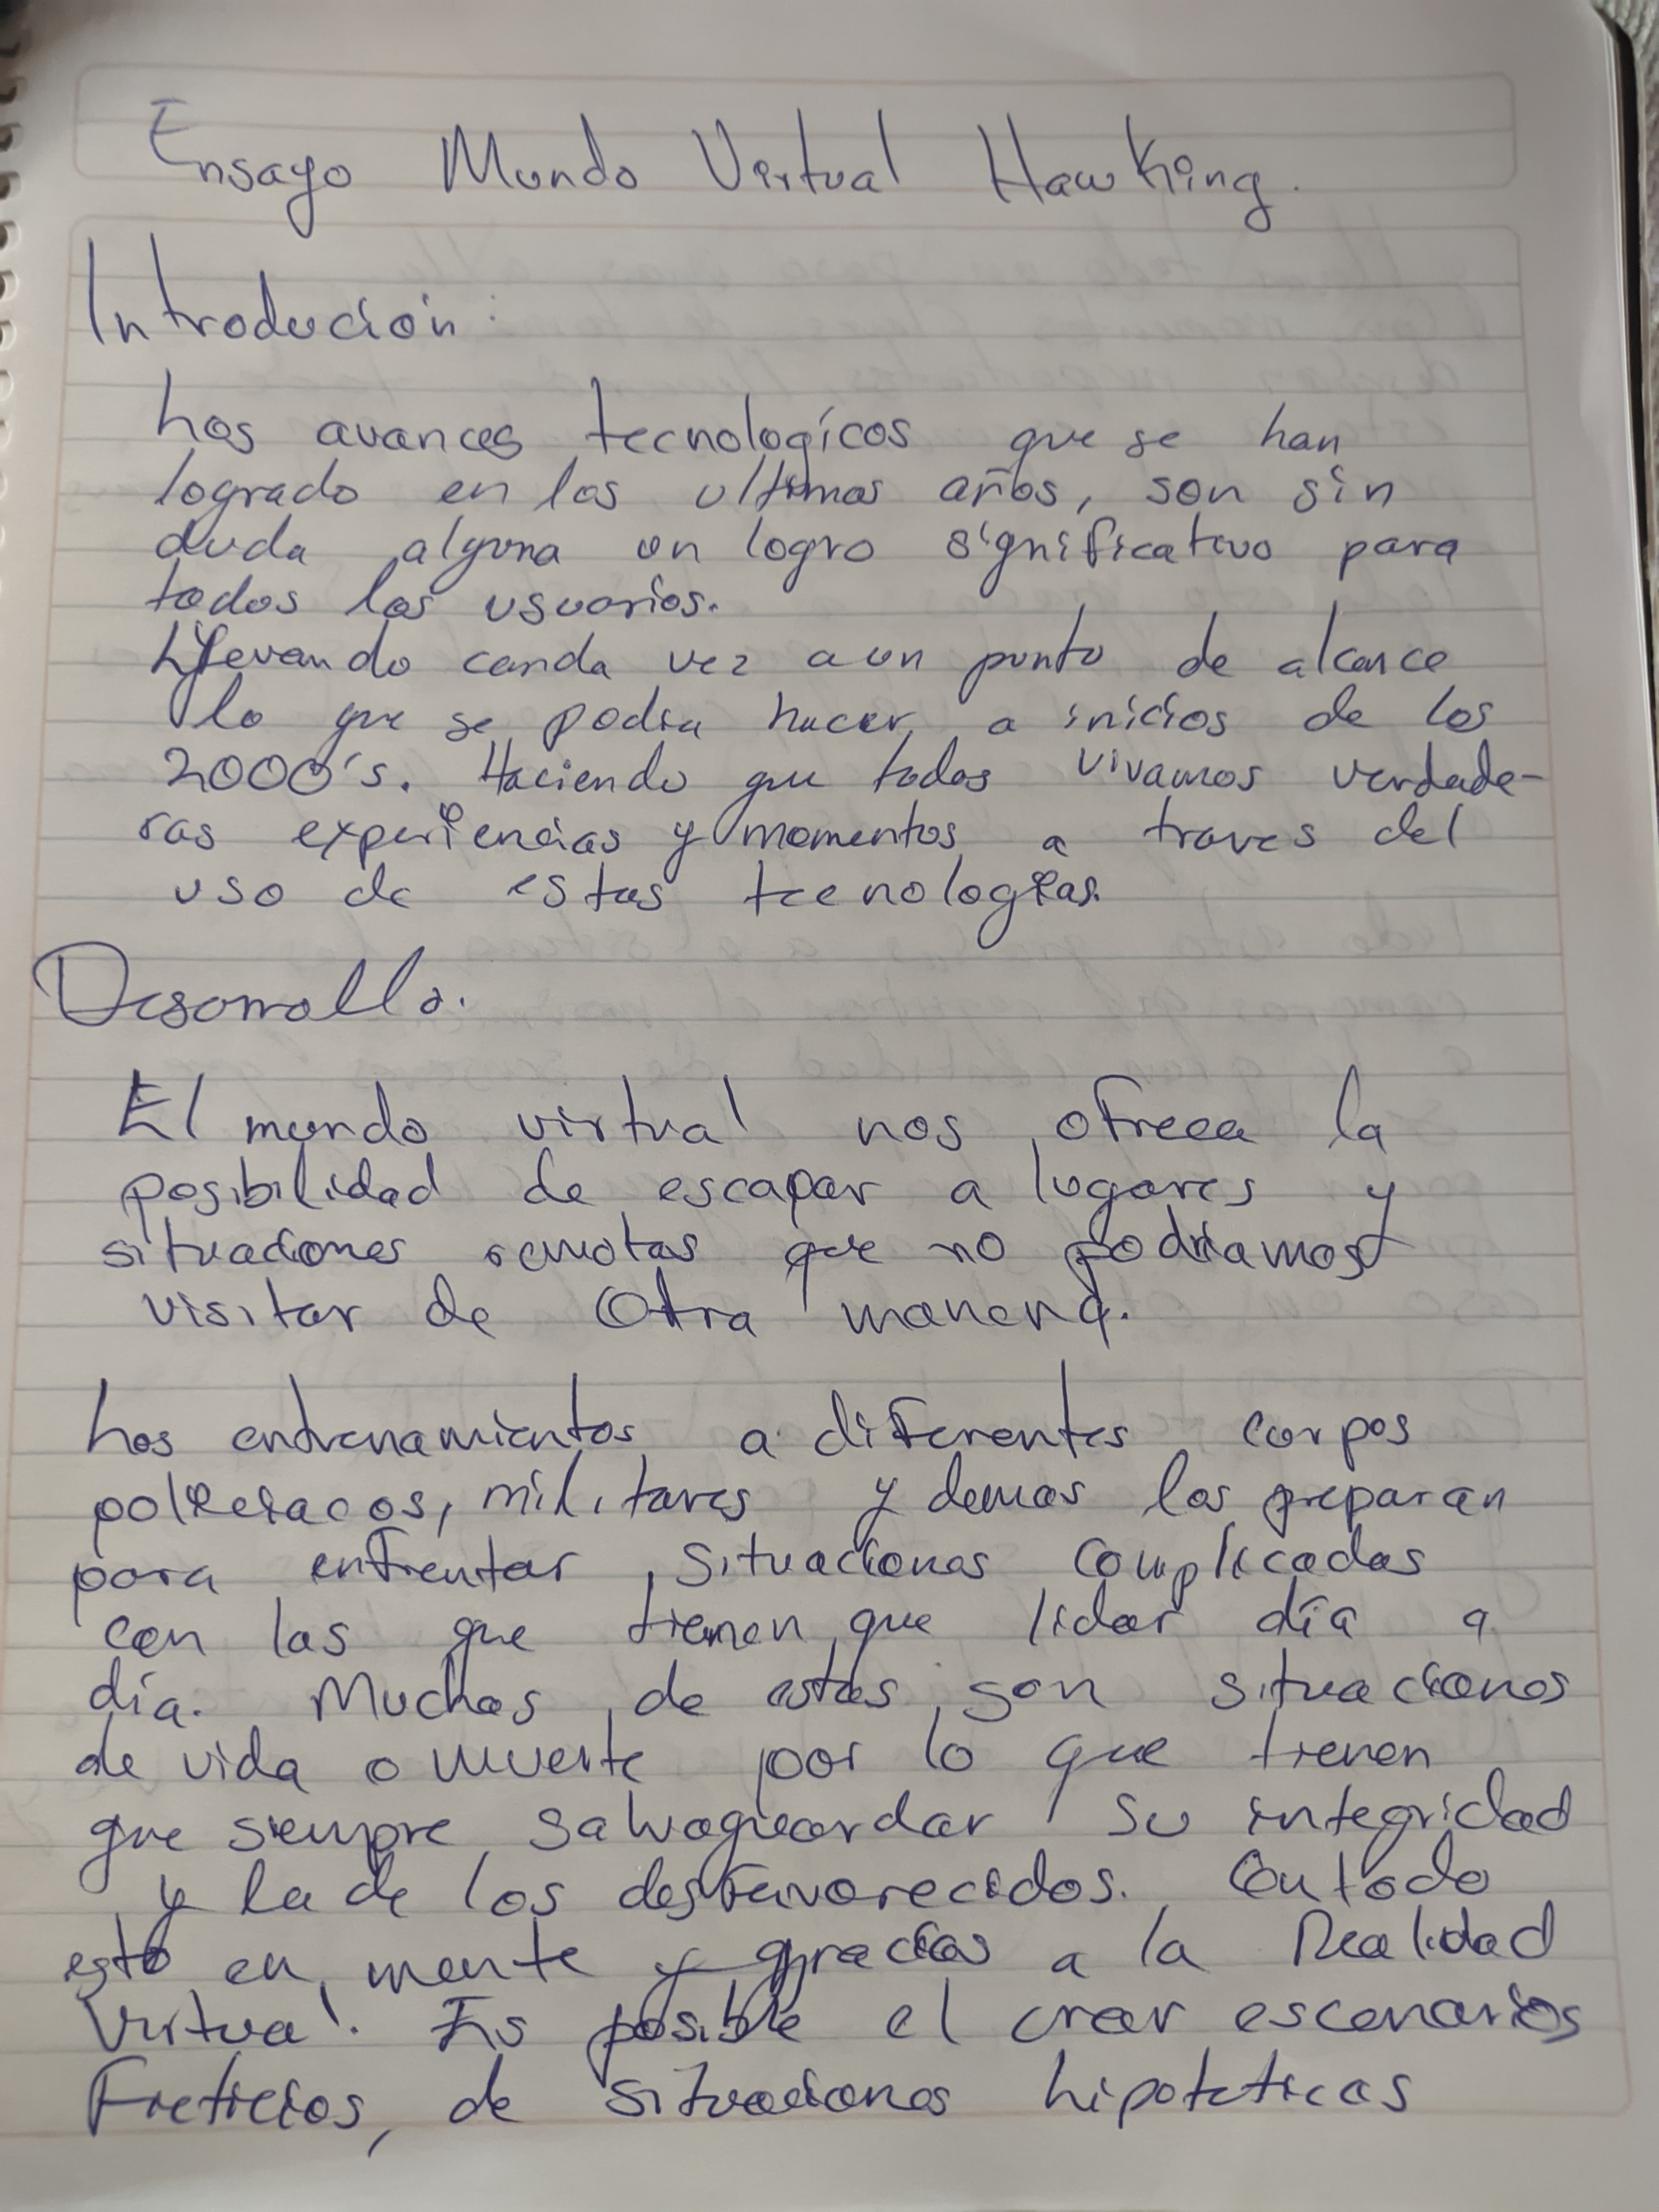 Ensayo Mundo Virtual Hawking.
Introducion:
Los avances tecnologícos que se han
logrado en los ultimos años, son sin
duda alguna un logro significativo para
todos los usuarios.
Llevando canda vez a un punto de alcance
lo que se podia hacer a inicios de los
2000's. Haciendo que todos vivamos verdade-
ras experiencias y momentos a traves del
uso de estas tecnologias.
Desarrollo.
El mundo virtual nos ofrece la
posibilidad de escapar a lugares y
situaciones remotas que no podriamos
visitar de Otra manera.
Los entrenamientos a diferentes corpos
policiacos, militares y demas los preparan
para enfrentar situaciones complicadas
con las que tienen que lidar día a
día. Muchas de estas son situaciones
de vida o muerte por lo que tienen
que siempre salvaguardar su integridad
y la de los desfavorecidos. Con todo
esto en mente y gracias a la Realidad
Virtual. Es posible el crear escenarios
Ficticios, de situaciones hipoteticas